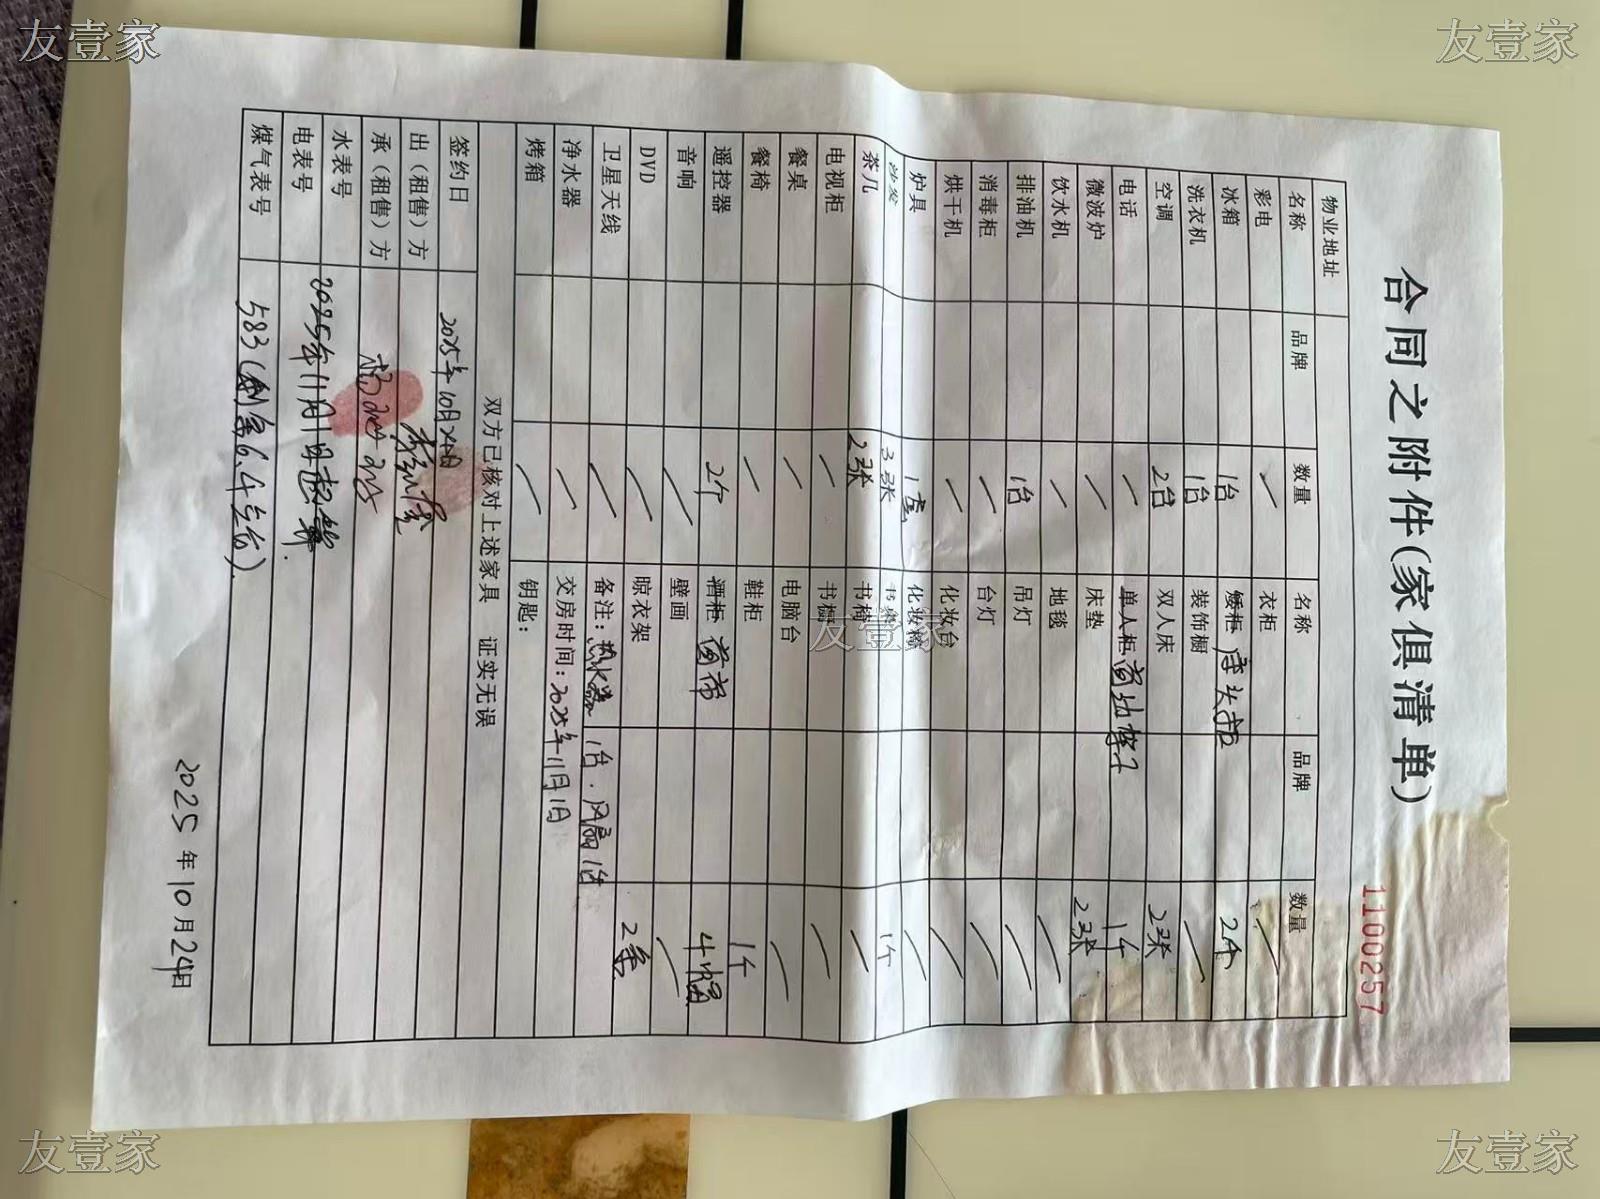 友壹家
友壹家
合同之附件(家俱清单)
1100257
物业地址
名称 品牌 数量 名称 品牌 数量
彩电 / 衣柜 /
冰箱 1台 矮柜 床头柜 2个
洗衣机 1台 装饰橱 /
空调 2台 双人床 2张
电话 / 单人柜 1个
微波炉 / 床垫 2张
饮水机 / 地毯 /
排油机 1台 吊灯 /
消毒柜 / 台灯 /
烘干机 / 化妆台 /
炉具 1套 化妆椅 /
沙发 3张 书桌 1个
茶几 2张 书椅 /
电视柜 / 书橱 /
餐桌 / 电脑台 /
餐椅 / 鞋柜 1个
遥控器 2个 酒柜 窗帘 4幅
音响 / 壁画 /
DVD / 晾衣架 2条
卫星天线 / 备注:热水器1台.风扇1台
净水器 / 交房时间:2025年11月1日
烤箱 / 钥匙:
双方已核对上述家具 证实无误
签约日 2025年10月24日
出(租售)方
承(租售)方
水表号
电表号 2025年11月1日起算.
煤气表号 583(剩余6.4左右).
2025年10月24日
友壹家
友壹家
友壹家